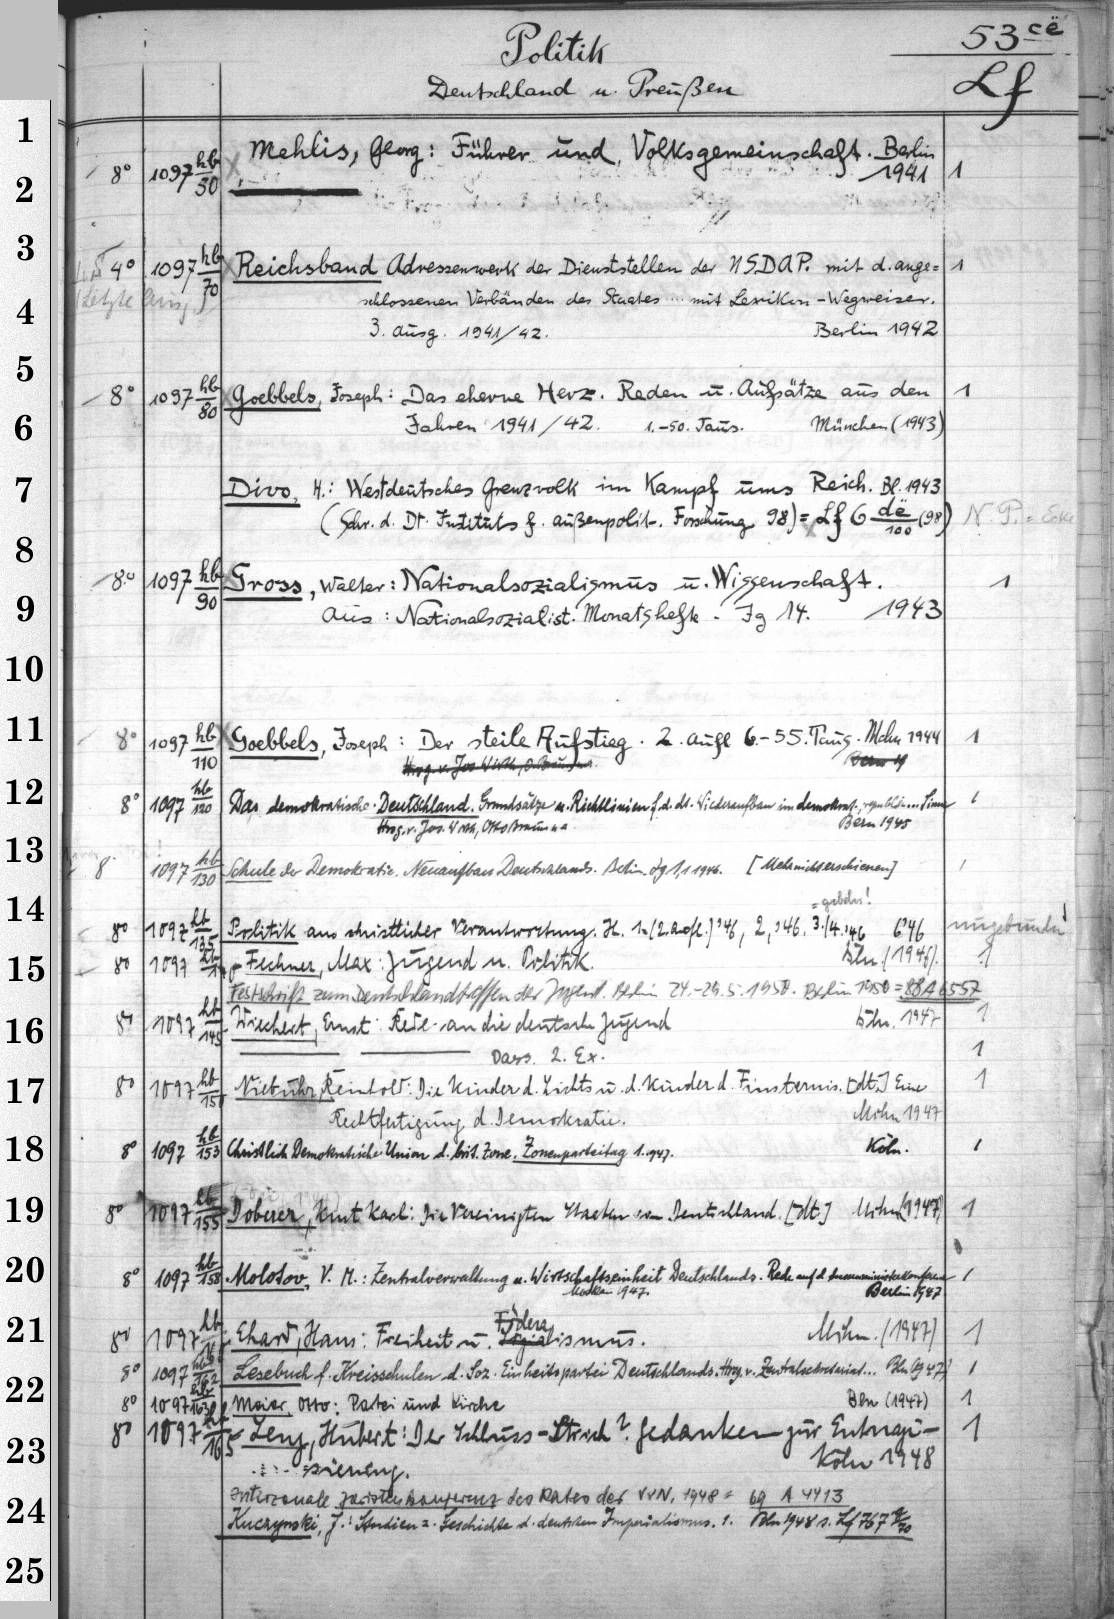 Politik
53 cë
Deutschland u. Preußen
Lf
1
8° 1097 hb/50 Mehlis, Georg: Führer und Volksgemeinschaft. Berlin 1941 1
2
3
4° 1097 hb/70 Reichsband Adressenwerk der Dienststellen der NSDAP. mit d. ange= 1
schlossenen Verbänden des Staates ... mit Lexikon-Wegweiser.
4
3. Ausg. 1941/42. Berlin 1942
5
8° 1097 hb/80 Goebbels, Joseph: Das eherne Herz. Reden u. Aufsätze aus den 1
6
Jahren 1941/42. 1.-50. Taus. München (1943)
7
Divo, H.: Westdeutsches Grenzvolk im Kampf ums Reich. Bl. 1943
(Schr. d. Dt. Instituts f. außenpolit. Forschung 98) = Lf 6 dë/100 (98) N. P. =
8
8° 1097 hb/90 Gross, Walter: Nationalsozialismus u. Wissenschaft. 1
9
Aus: Nationalsozialist. Monatshefte. Jg 14. 1943
10
11
8° 1097 hb/110 Goebbels, Joseph: Der steile Aufstieg. 2. Aufl 6.-55. Taus. Mchn 1944 1
Hrsg. v. Jos Wirth, O. Braun
12
8° 1097 hb/120 Das demokratische Deutschland. Grundsätze u. Richtlinien f. d. dt. Wiederaufbau im demokrat., republikan... Sinne 1
Hrsg. v. Jos. Wirth, Otto Braun u a Bern 1945
13
8° 1097 hb/130 Schule der Demokratie. Neuaufbau Deutschlands. Berlin Jg 1,1 1946. [Mehr nicht erschienen] 1
14
= gebdn!
8° 1097 hb/135 Politik aus christlicher Verantwortung. H. 1. (2. Aufl.) '46, 2, '46. 3./4. '46 6'46 ungebunden!
15
8° 1097 hb/ Fechner, Max: Jugend u. Politik. Bln. (1946). 1
Festschrift zum Deutschlandtreffen der Jugend. Berlin 1950. Berlin 1950 = 88 A 6557
16
8° 1097 hb/145 Wiechert, Ernst: Rede an die deutsche Jugend Bln. 1947 1
Dass. 2. Ex. 1
17
8° 1097 hb/151 Niebuhr, Reinhold: Die Kinder d. Lichts u. d. Kinder d. Finsternis. [dt.] Eine 1
Rechtfertigung d. Demokratie. Mchn 1947
18
8° 1097 hb/153 Christlich Demokratische Union d. brit. Zone. Zonenparteitag 1. 1947. Köln. 1
19
8° 1097 hb/155 Doberer, Kurt Karl: Die Vereinigten Staaten von Deutschland. [dt.] Mchn (1947) 1
20
8° 1097 hb/158 Molotov, V. M.: Zentralverwaltung u. Wirtschaftseinheit Deutschlands. Rede auf d. Aussenministerkonferenz 1
Moskau 1947. Berlin 1947
21
Födera
8° 1097 hb/ Ehard, Hans: Freiheit u. lismus. Mchn. (1947) 1
8° 1097 hb/162 Lesebuch f. Kreisschulen d. Soz. Einheitspartei Deutschlands. Hrsg. v. Zentralsekretariat... Bln (1947) 1
22
8° 1097 hb/163 Maier, Otto: Partei und Kirche Bln (1947) 1
8° 1097 hb/165 Lenz, Hubert: Der Schluss-Strich? Gedanken zur Entnazi- 1
23
fizierung. Köln 1948
24
Interzonale Juristenkonferenz des Rates der VVN, 1948 = 69 A 4413
Kuczynski, J.: Studien z. Geschichte d. deutschen Imperialismus. 1. Bln 1948 s. Lf 767
25